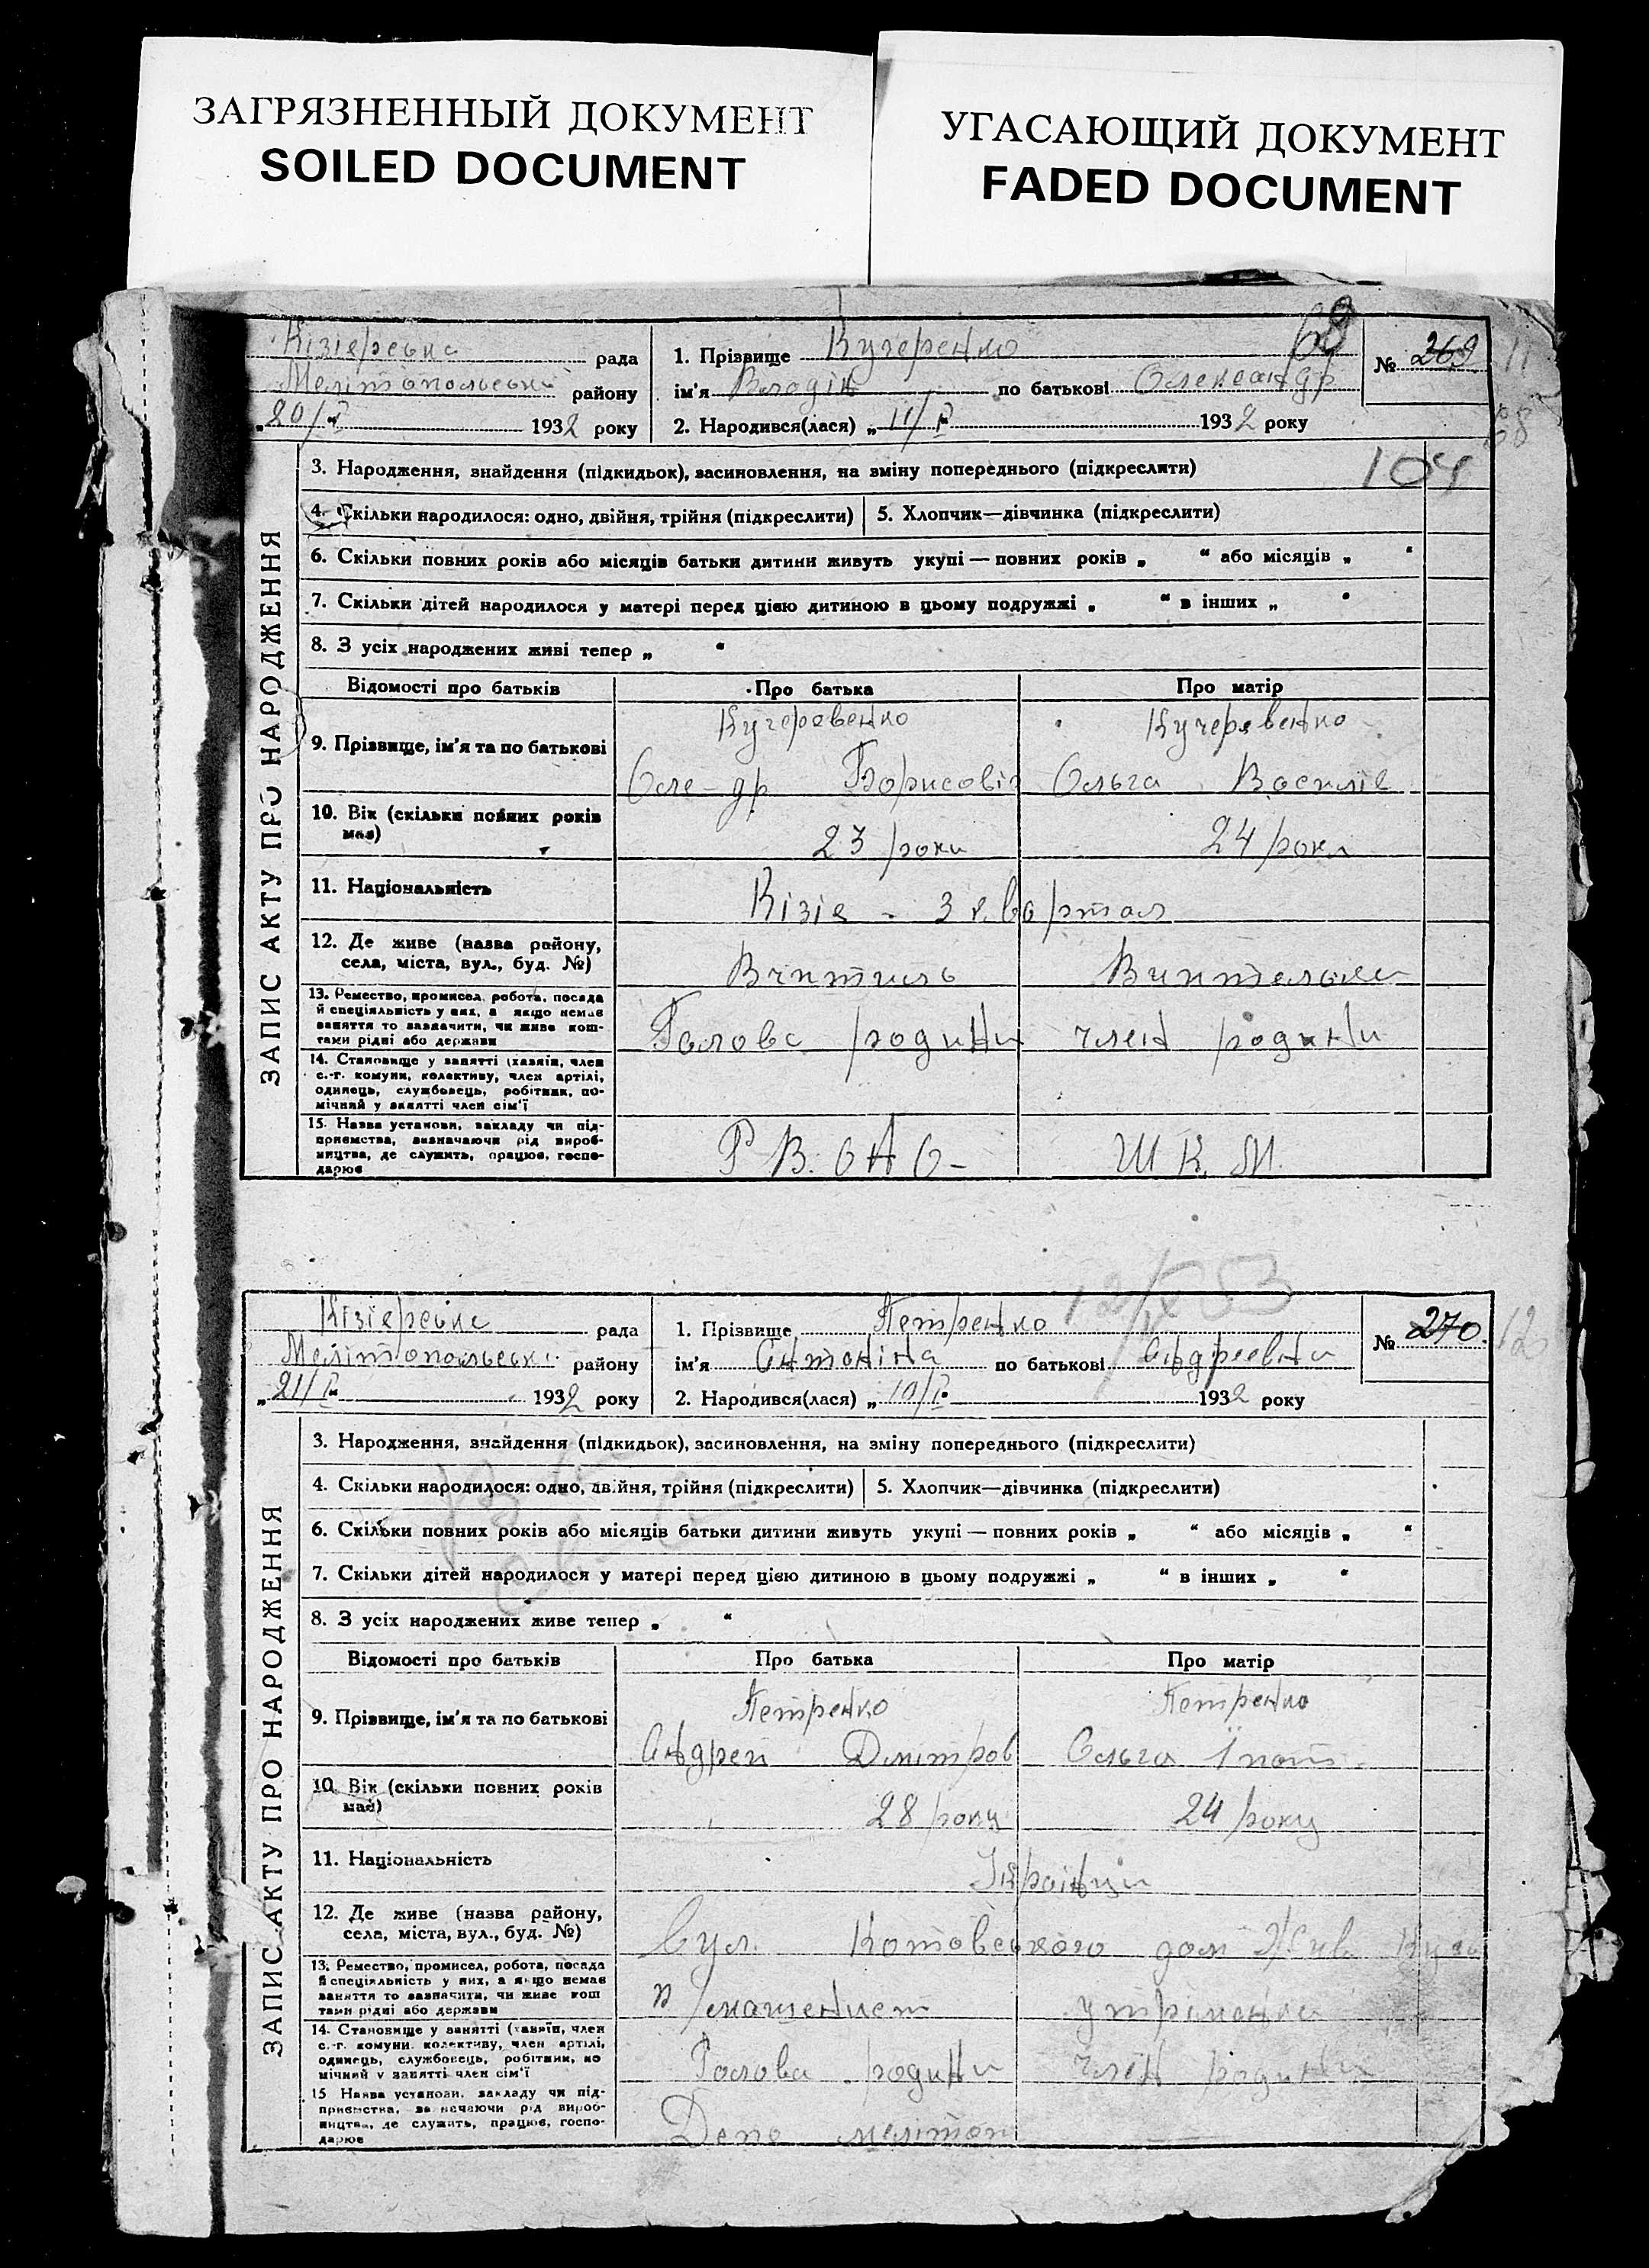 ЗАГРЯЗНЕННЫЙ ДОКУМЕНТ
SOILED DOCUMENT
УГАСАЮЩИЙ ДОКУМЕНТ
FADED DOCUMENT
69
Кізіерська рада
Мелітопольській району
„20/I 1932 року
1. Прізвище Кучеренко
ім'я по батькові Олександр
2. Народився(лася) „11/I 1932 року
№ 269
11
68
ЗАПИС АКТУ ПРО НАРОДЖЕННЯ
3. Народження, знайдення (підкидьок), засиновлення, на зміну попереднього (підкреслити)
104
4. Скільки народилося: одно, двійня, трійня (підкреслити)
5. Хлопчик—дівчинка (підкреслити)
6. Скільки повних років або місяців батьки дитини живуть укупі — повних років „ “ або місяців „ “
7. Скільки дітей народилося у матері перед цією дитиною в цьому подружжі „ “ в інших „ “
8. З усіх народжених живі тепер „ “
Відомості про батьків Про батька Про матір
9. Прізвище, ім'я та по батькові
Кучеревенко Кучеревенко
Оле-др Борисовіч Ольга Василів
10. Вік (скільки повних років має)
23 роки 24 роки
11. Національність
Кізія - 3 квартал
12. Де живе (назва району, села, міста, вул., буд. №)
Вчитиль Вчителька
13. Ремество, промисел, робота, посада
й спеціяльність у них, а якщо немає
заняття то зазначити, чи живе кош-
тами рідні або держави
Голова родини член родини
14. Становище у занятті (хазяїн, член
с.-г. комуни, колективу, член артілі,
одинець, службовець, робітник, по-
мічний у занятті член сім'ї
15. Назва установи, закладу чи під-
приємства, визначаючи рід вироб-
ництва, де служить, працює, госпо-
дарює
Р В. О Н О- Ш К. М.
12/ 53
Кізіерська рада
Мелітопольськ. району
„21/I 1932 року
1. Прізвище Петренко
ім'я Антоніна по батькові Андреевни
2. Народився(лася) „10/I 1932 року
№ 270.
12
ЗАПИС АКТУ ПРО НАРОДЖЕННЯ
3. Народження, знайдення (підкидьок), засиновлення, на зміну попереднього (підкреслити)
4. Скільки народилося: одно, двійня, трійня (підкреслити)
5. Хлопчик—дівчинка (підкреслити)
6. Скільки повних років або місяців батьки дитини живуть укупі — повних років „ “ або місяців „ “
7. Скільки дітей народилося у матері перед цією дитиною в цьому подружжі „ “ в інших „ “
8. З усіх народжених живе тепер „ “
Відомості про батьків Про батька Про матір
9. Прізвище, ім'я та по батькові
Петренко Петренко
Андрей Дмітров Ольга Іпат.
10. Вік (скільки повних років має)
28 року 24 року
11. Національність
Українци
12. Де живе (назва району, села, міста, вул., буд. №)
Вул. Котовського дом
13. Ремество, промисел, робота, посада
й спеціяльність у них, а якщо немає
заняття то зазначити, чи живе кош
тами рідні або держави
п/машенист утріманка
14. Становище у занятті (хазяїн, член
с.-г. комуни, колективу, член артілі,
одинець, службовець, робітник, по
мічний у занятті член сім'ї
Голова родини член родини
15 Назва установи, закладу чи під-
приємства, визначаючи рід вироб-
ництва, де служить, працює, госпо-
дарює
Депо мелітоп